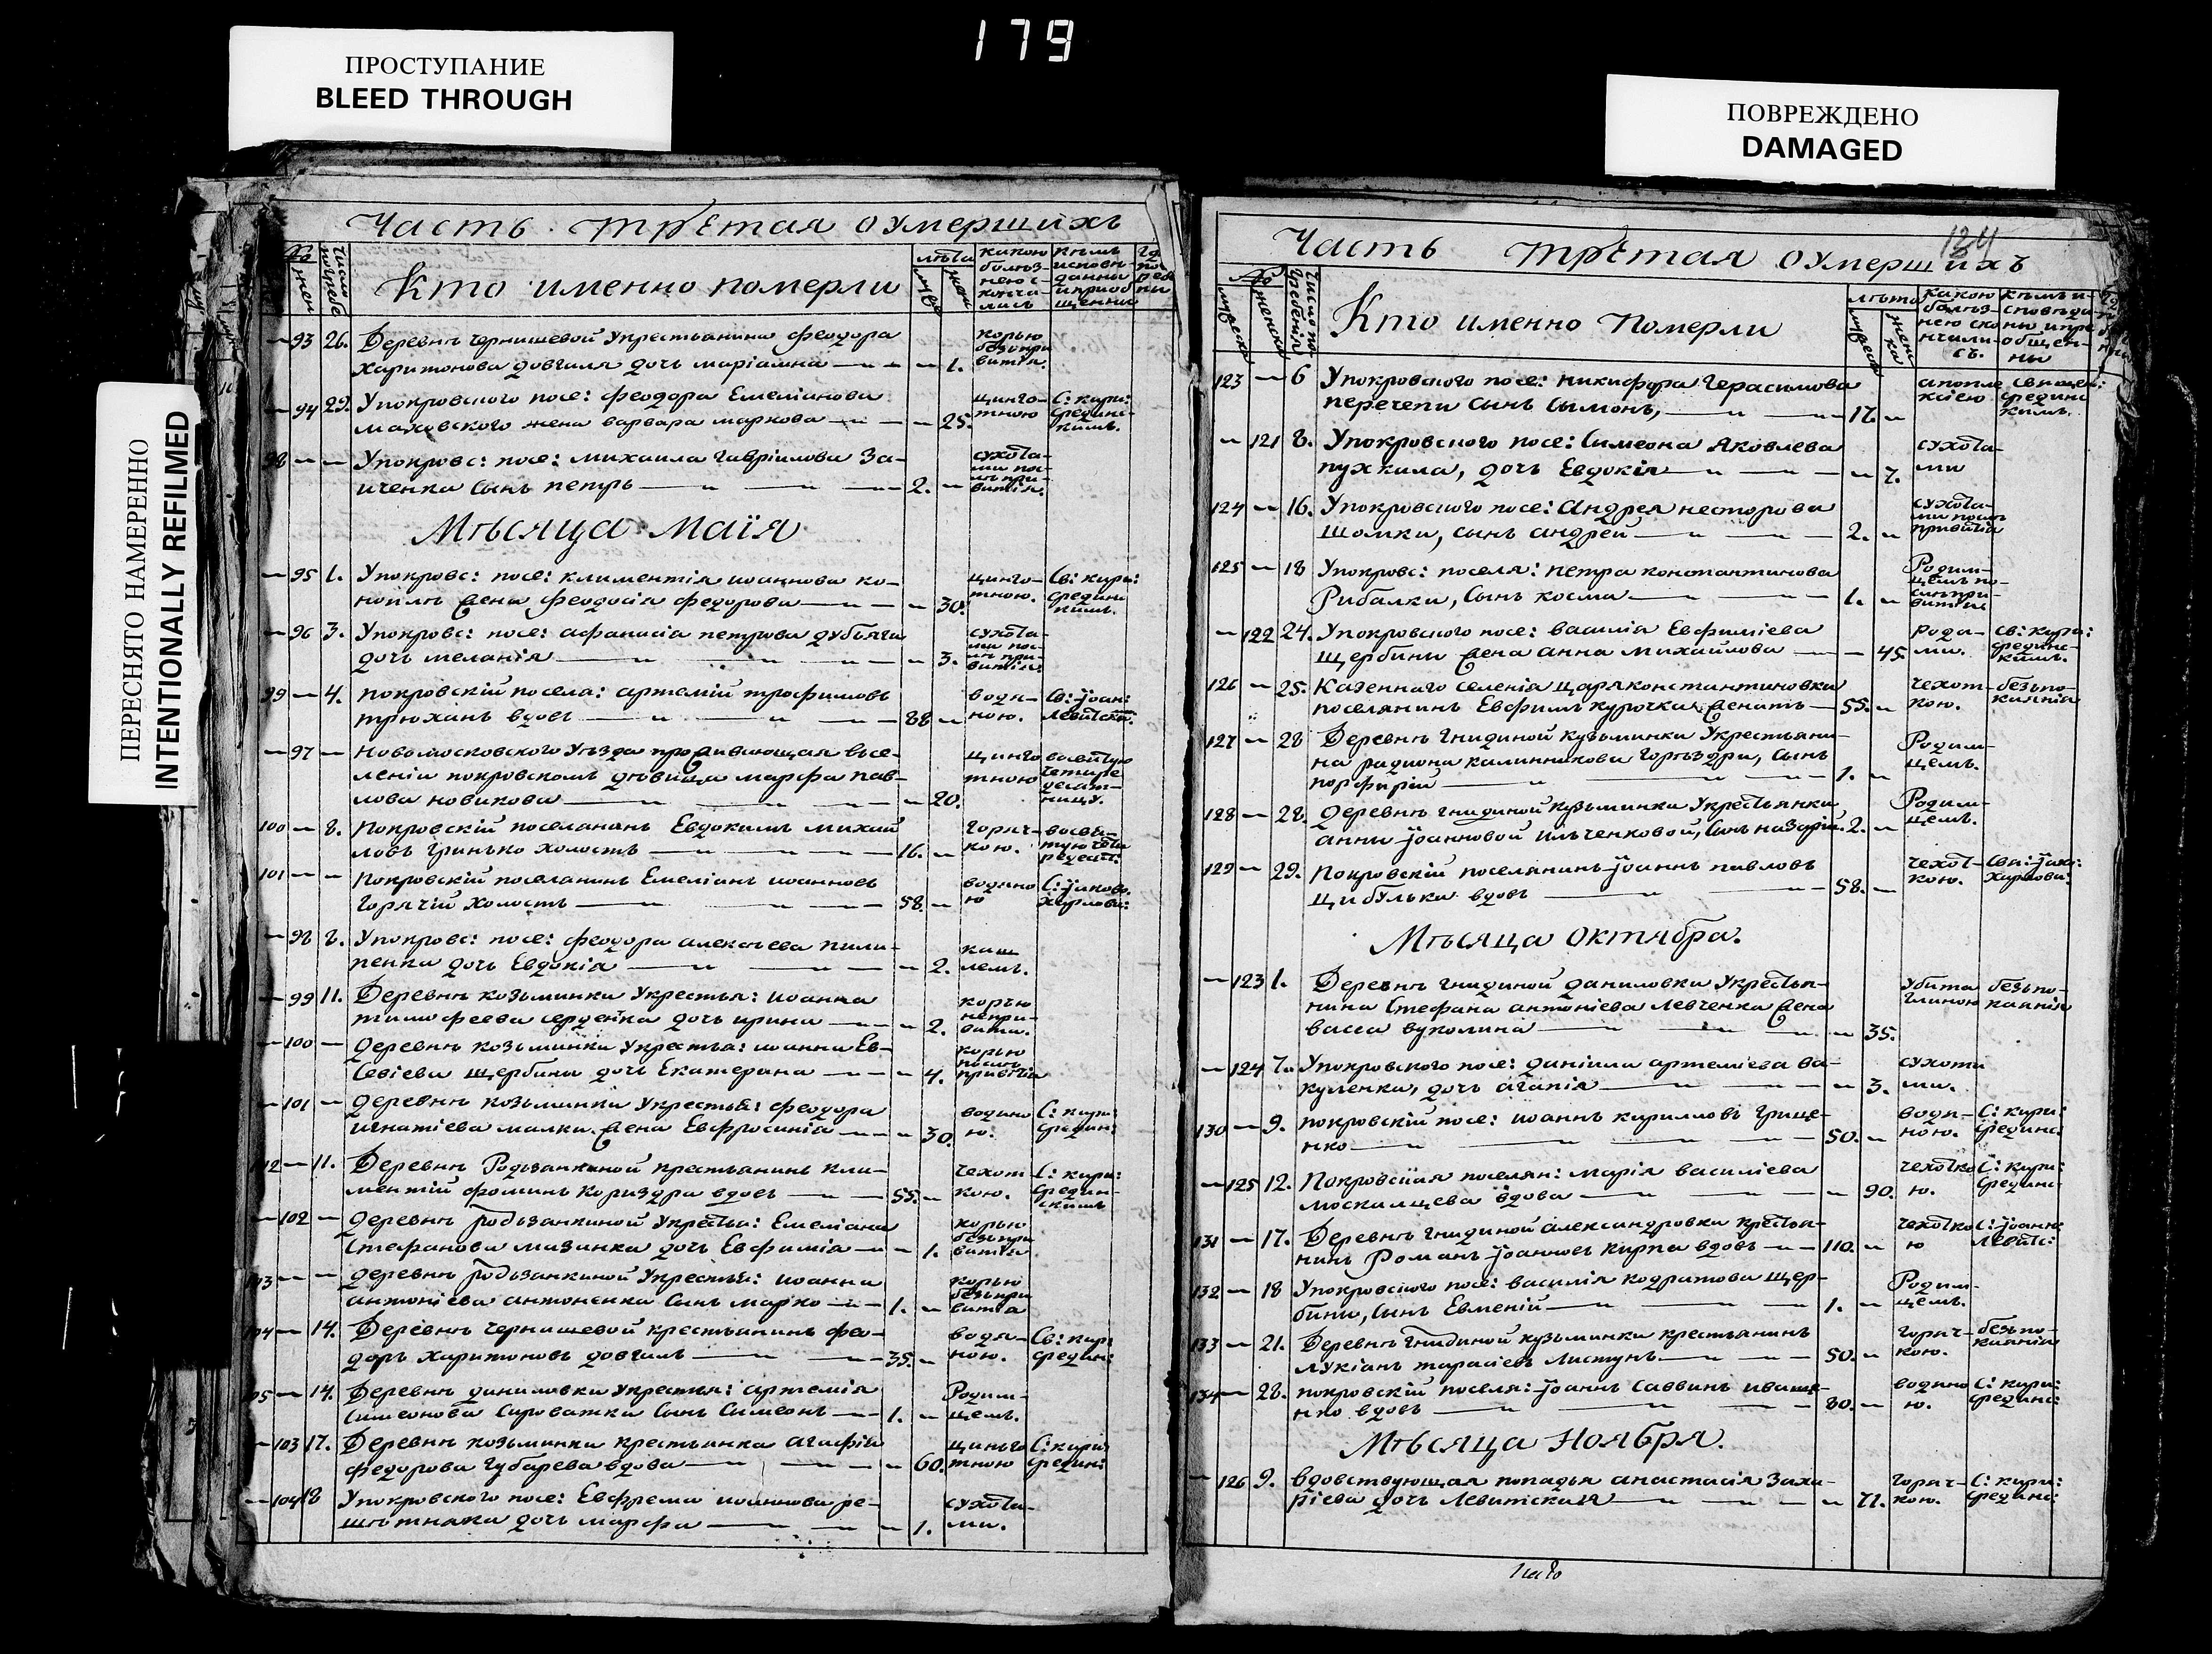 179
ПРОСТУПАНИЕ
BLEED THROUGH
ПОВРЕЖДЕНО
DAMAGED
ПЕРЕСНЯТО НАМЕРЕННО
INTENTIONALLY REFILMED
Часть третая о умершихъ
Кто именно померли
лѣта
93 26. Деревнѣ чернишевой У крестьянина феодора
харитонова довгаля дочь маріамна 1. корью безъ при витія.
94 29. У покровского посе: феодора Емеліанова
маховского жена варвара маркова 25. цинготною С: кири: Срединскимъ.
98 У покровс: посе: михаила гавріилова За-
иченка Сынъ петръ 2.
Мѣсяца Маїя
95 1. У покровс: посе: климентія иоаннова ко-
жена феодосія федорова 30. цинготною. Св: кири:
96 3. У покровс: посе: афанасія петрова дубъяги
дочь меланія 3.
99 4. покровскій посела: артемій трофимовъ
трюханъ вдовъ 88 водяною. Св: іоан: Левитски:
97 Новомосковского уѣзда проживающая въ се-
леніи покровскомъ дѣвица марфа пав-
лова новикова 20. цинготною
100 8. Покровскій поселанинъ Евдокимъ михай
ловъ гринько холостъ 16. горячкою.
101 Покровскій поселанинъ Емеліанъ иоанновъ
Горячій холостъ 58. водяною
98 8. У покровс: посе: феодора алексѣева пили-
пенка дочь Евдокія 2. кашлемъ.
99 11. Деревнѣ козьминки У крестья: иоанна
тимофеева серденка дочь ирина 2.
100 Деревнѣ козьминки У крестьа: иоанна Ев-
севіева щербины дочь Екатерина 4. корью
101 Деревнѣ козьминки У крестья: феодора
игнатіева малки жена Евфросинія 30. водяною. С: кири: Средин:
102 11. Деревнѣ Родзянкиной крестьанинъ кли-
ментій фоминъ Кориздра вдовъ 55. чехоткою. С: кири: Срединскимъ
102 Деревнѣ родзянкиной У крестьа: Емеліана
Стефанова мазинка дочь Евфимія 1. корью безъ при витія
103 Деревнѣ родзянкиной У крестья: иоанна
антоніева антоненка Сынъ марко 1. корью безъ при витіа
104 14. Деревнѣ чернишевой крестьанинъ фео-
доръ харитоновъ довгаль 35. водяною. Св: кири: Средин:
105 14. Деревнѣ даниловки У крестья: артемія
Симеонова Сироватки Сынъ Симеонъ 1. Родимцемъ.
103 17. Деревнѣ козьминки крестьанка агафія
федорова губарева вдова 60. цинготною С: кири: Средин:
104 18 У покровского посе: Евфрема иоаннова ре-
шѣтнака дочь марфа 1. сухотами.
134
Часть третая о умершихъ
Кто именно Померли
лѣта
123 6 У покровского посе: никифора герасимова
перечепи сынъ Сымонъ, 17. апоплексіею
121 8. У покровского посе: Симеона Яковлева
пужкала, дочь Евдокія 7. сухотами
124 16. У покровского посе: Андрея несторова
шомки, сынъ андрей 2. сухотами
125 18 У покровс: поселя: петра константинова
Рибалки, Сынъ косма 1. Родимцемъ
122 24. У покровского посе: василія Евфиміева
щербини жена анна михайлова 45. родами. Св: кири: Срединскимъ.
126 25. Казенного селенія царяконстантиновки
поселянинъ Евфимъ курочка женатъ 55. чехоткою. безъ покаянія
127 28 Деревнѣ гнидиной кузьминки У крестьяни-
на радиона калинникова Горъздри, Сынъ
порфирій 1. Родимцемъ.
128 28. Деревнѣ гнидиной кузьминки У крестьянки
анни іоанновой ильченковой, Сынъ назарій. 2. Родимцемъ.
129 29. Покровскій поселянинъ іоаннъ павловъ
Цибулька вдовъ 58. чехоткою.
Мѣсяца Октября.
123 1. Деревнѣ гнидиной даниловки У крестья-
нина Стефана антоніева левченка жена
васса вуколина 35. убита глиною безъ покаянія
124 7. У покровского посе: даніила артеміева ва-
куленка, дочь агапія 3. сухотами.
130 9. покровскій посе: иоаннъ кирилловъ грице-
нко 50. водяною. С: кири: Срединс:
125 12. Покровская поселян: марія василіева
москалцева вдова 90. чехоткою. С: кири: Срединс:
131 17. Деревнѣ гнидиной александровки крестья-
нинъ Романъ іоанновъ кирпа вдовъ 110. чехоткою С: іоанн: Левитс:
132 18 У покровского посе: василія кодратова щер-
бини, Сынъ Евмений 1. Родимцемъ.
133 21. Деревнѣ гнидиной кузьминки крестьянинъ
лукіанъ тарасіевъ листунъ 50. горячкою. безъ покаянія
134 28. покровскій поселя: іоаннъ Саввинъ иваше-
нко вдовъ 80. водяною. С: кири: Срединс:
Мѣсяца Ноября.
126 9. вдовствующая попадья анастасія Заха-
ріева дочь Левитская 71. горячкою. С: кири: Срединс: